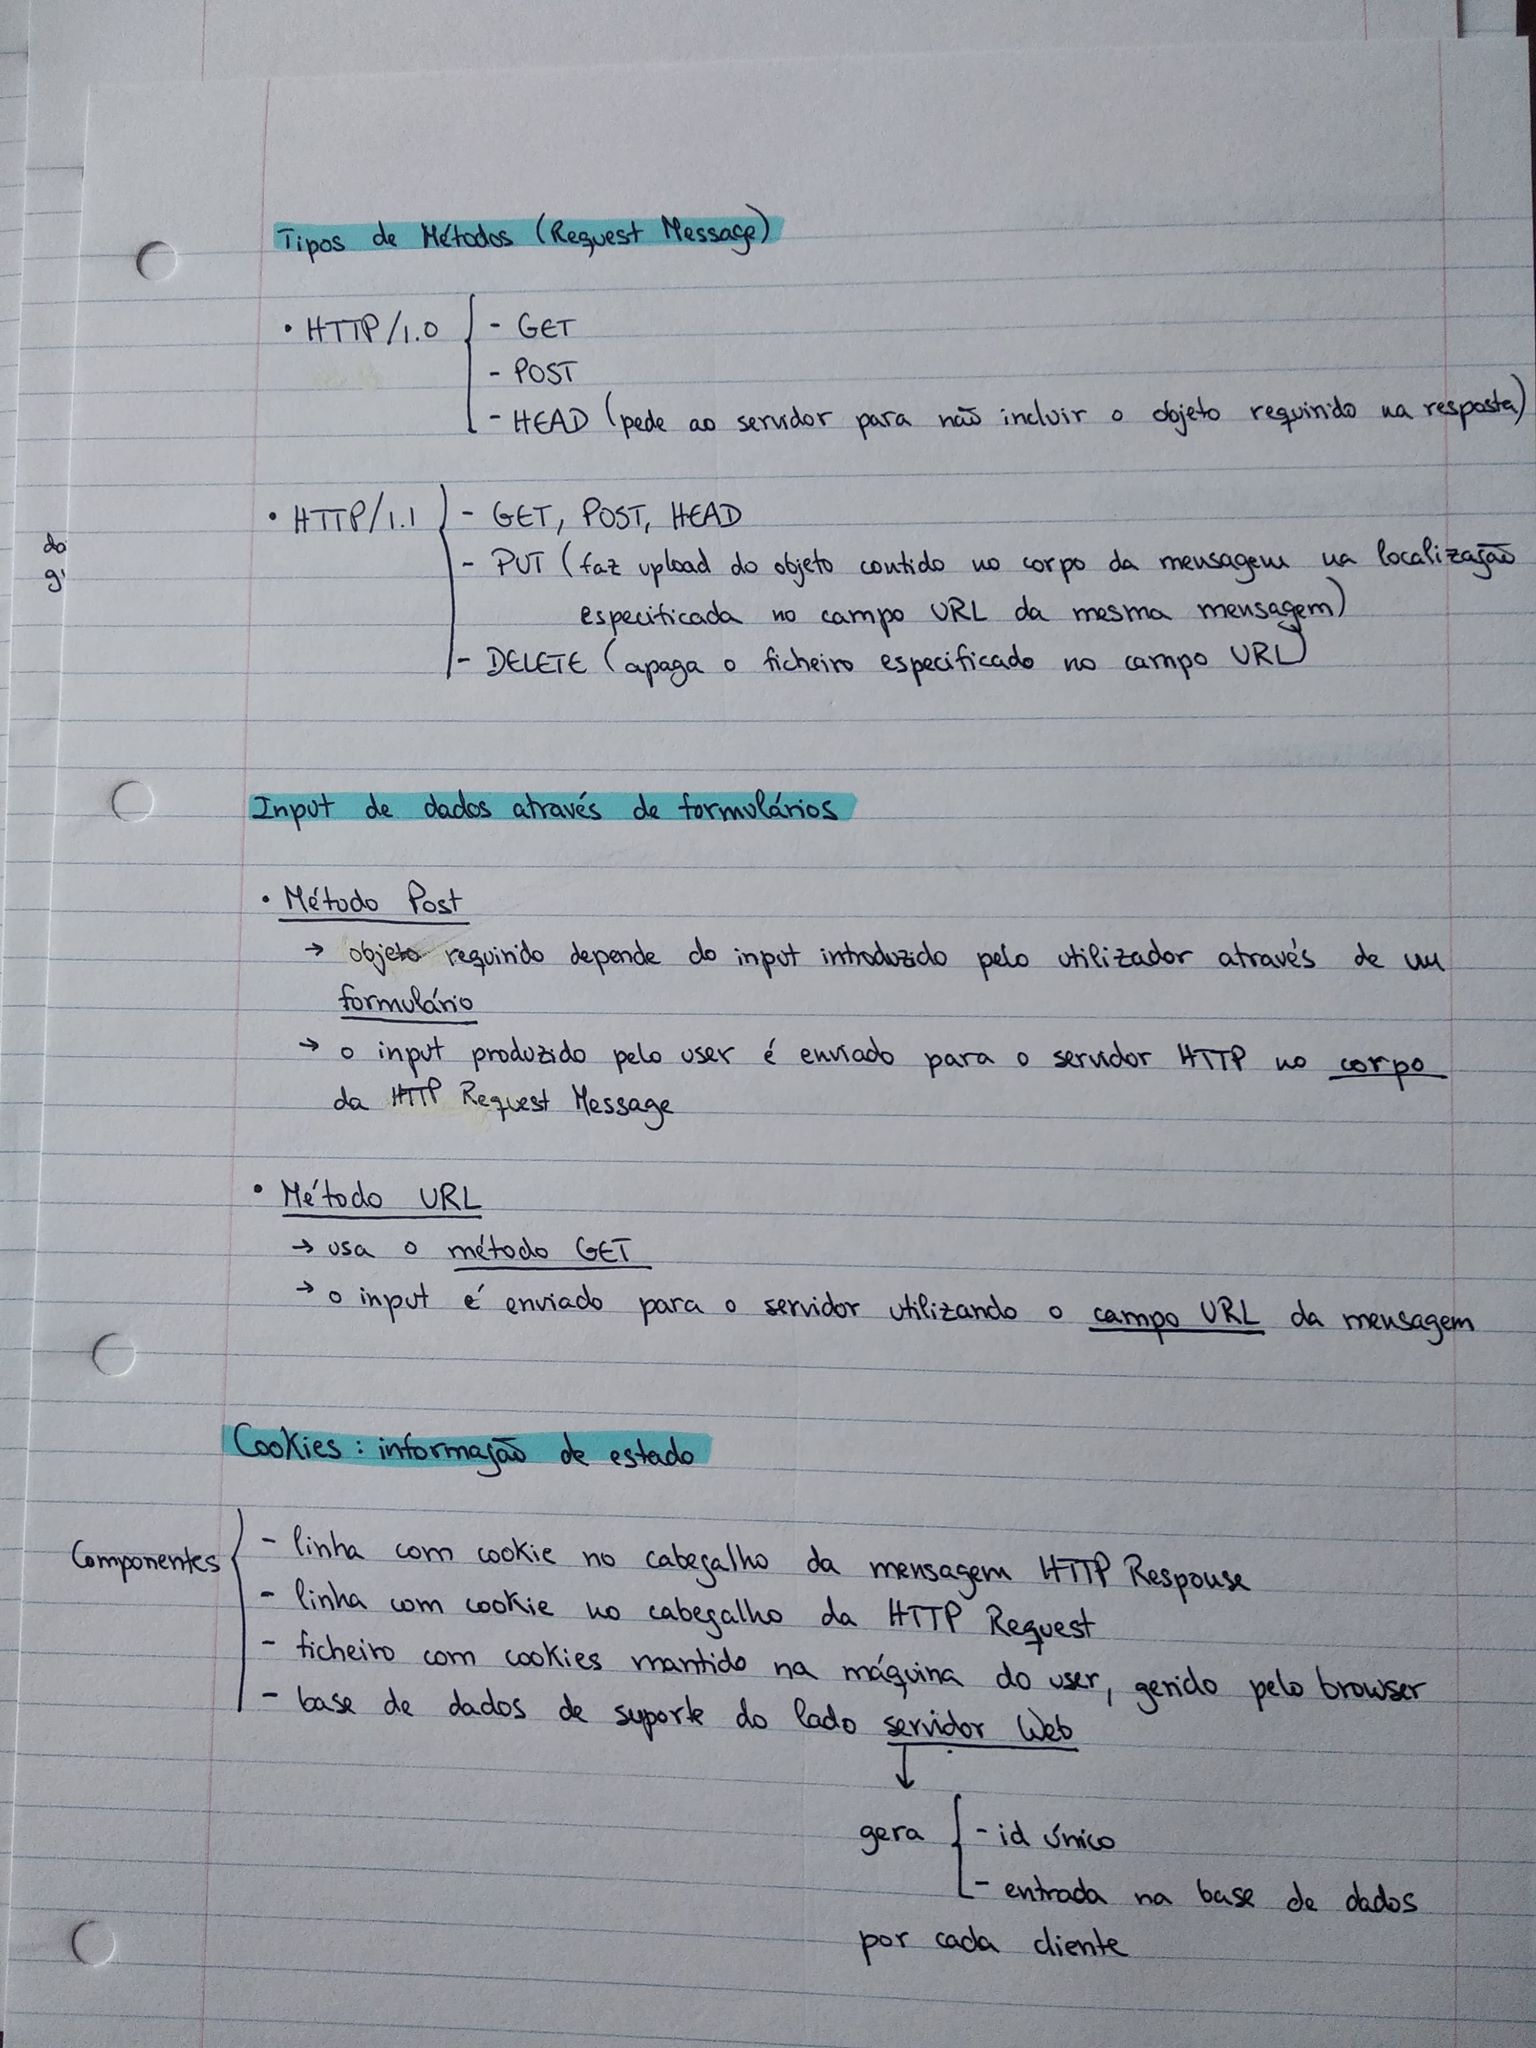 Tipos de Métodos (Request Message)
• HTTP/1.0 - GET
- POST
- HEAD (pede ao servidor para não incluir o objeto requirido na resposta)
• HTTP/1.1 - GET, POST, HEAD
do
- PUT (faz upload do objeto contido no corpo da mensagem na localização
especificada no campo URL da mesma mensagem)
- DELETE (apaga o ficheiro especificado no campo URL)
Input de dados através de formulários
• Método Post
→ objeto requirido depende do input introduzido pelo utilizador através de um
formulário
→ o input produzido pelo user é enviado para o servidor HTTP no corpo
da HTTP Request Message
• Método URL
→ usa o método GET
→ o input é enviado para o servidor utilizando o campo URL da mensagem
Cookies : informação de estado
Componentes - linha com cookie no cabeçalho da mensagem HTTP Response
- linha com cookie no cabeçalho da HTTP Request
- ficheiro com cookies mantido na máquina do user, gerido pelo browser
- base de dados de suporte do lado servidor Web
↓
gera - id único
- entrada na base de dados
por cada cliente